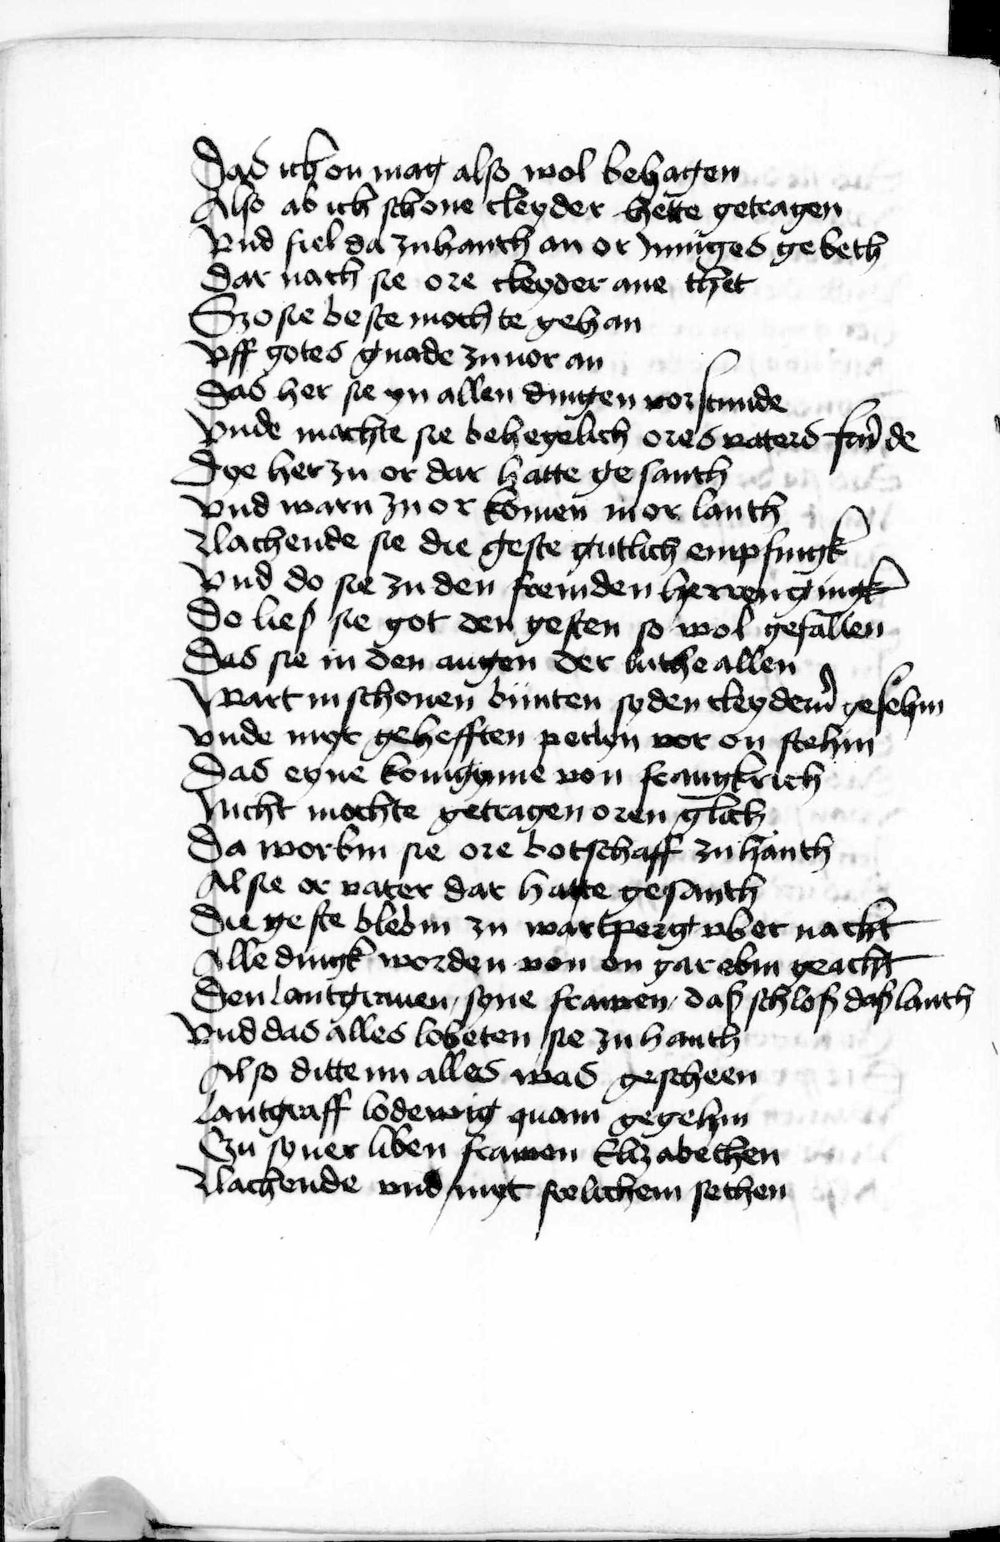 Das ich on mag also wol behagen
Also ab ich schone cleyder hette getragen
Vnd fiel da zuhanth an or Jnniges gebeth
Dar nach sie ore cleyder ane thet
Szo sie beste mochte gehan
Vff gotes gnade zuuor an
Das her sie yn allen dingen vorstunde
Vnde machte sie behegelich ores vaters frunde
Dye her zu or dar hatte gesanth
Vnd warn zu or komen in or lanth
Llachende sie die geste gutlich empfingk
Vnd do sie zu den fremden herren gingk
Do ließ sie got den gesten so wol gefallen
Das sie in den augen der luthe allen
Wart in schonen bunten syden cleydern gesehin
Vnde myt gehefften perlyn vor on stehin
Das eyne konigynne von frangkrich
Nicht mochte getragen oren glich
Da worbin sie ore botschaff zu hanth
Al sie or vater dar hatte gesanth
Die geste blebin zu wartperg vber nacht
Alle dingk worden von on gar ebin geacht
Den lantgrauen, syne frawen, daß schloß daß lanth
Vnd das alles lobeten sie zu hanth
Also ditte nu alles was gescheen
Lantgraff lodewig quam gegehin
Zu syner liben frawen Elizabethen
Llachende vnd myt frolichem sethen